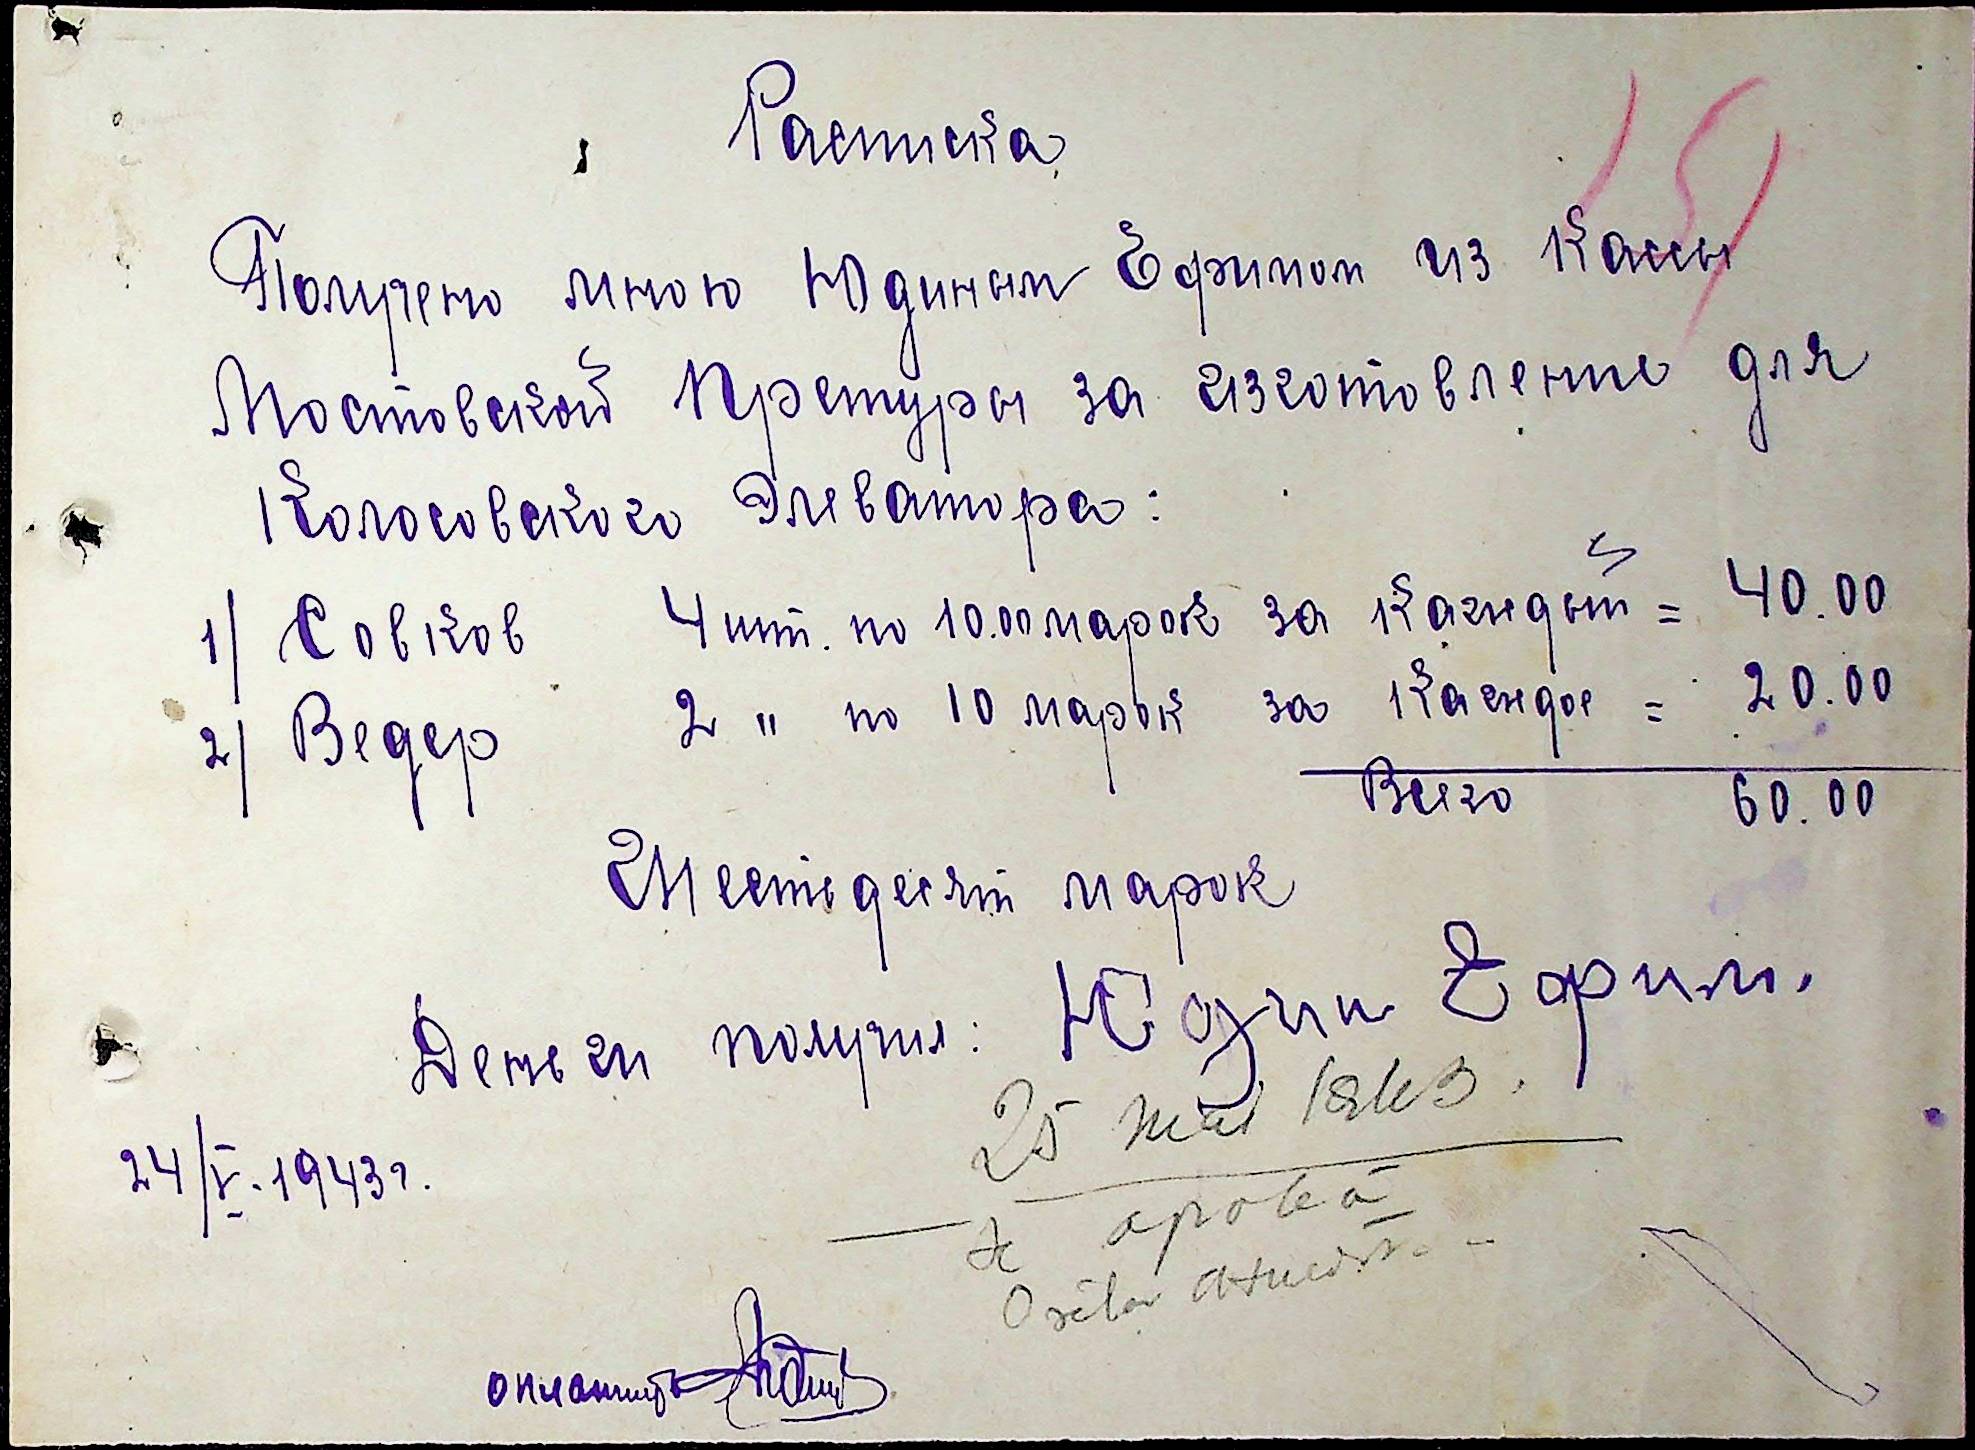 Расписка.
Получено мною Юдиным Ефимом из кассы
Мостовской Претуры за изготовление для
Колосовского Элеватора:
1/ Совков 4 шт. по 10.00 марок за каждый = 40.00
2/ Ведер 2 " по 10 марок за каждое = 20.00
Всего 60.00
Шестьдесят марок
Деньги получил: Юдин Ефим.
25 Mai 1943.
24/V. 1943 г.
Se aprobă
оплатить